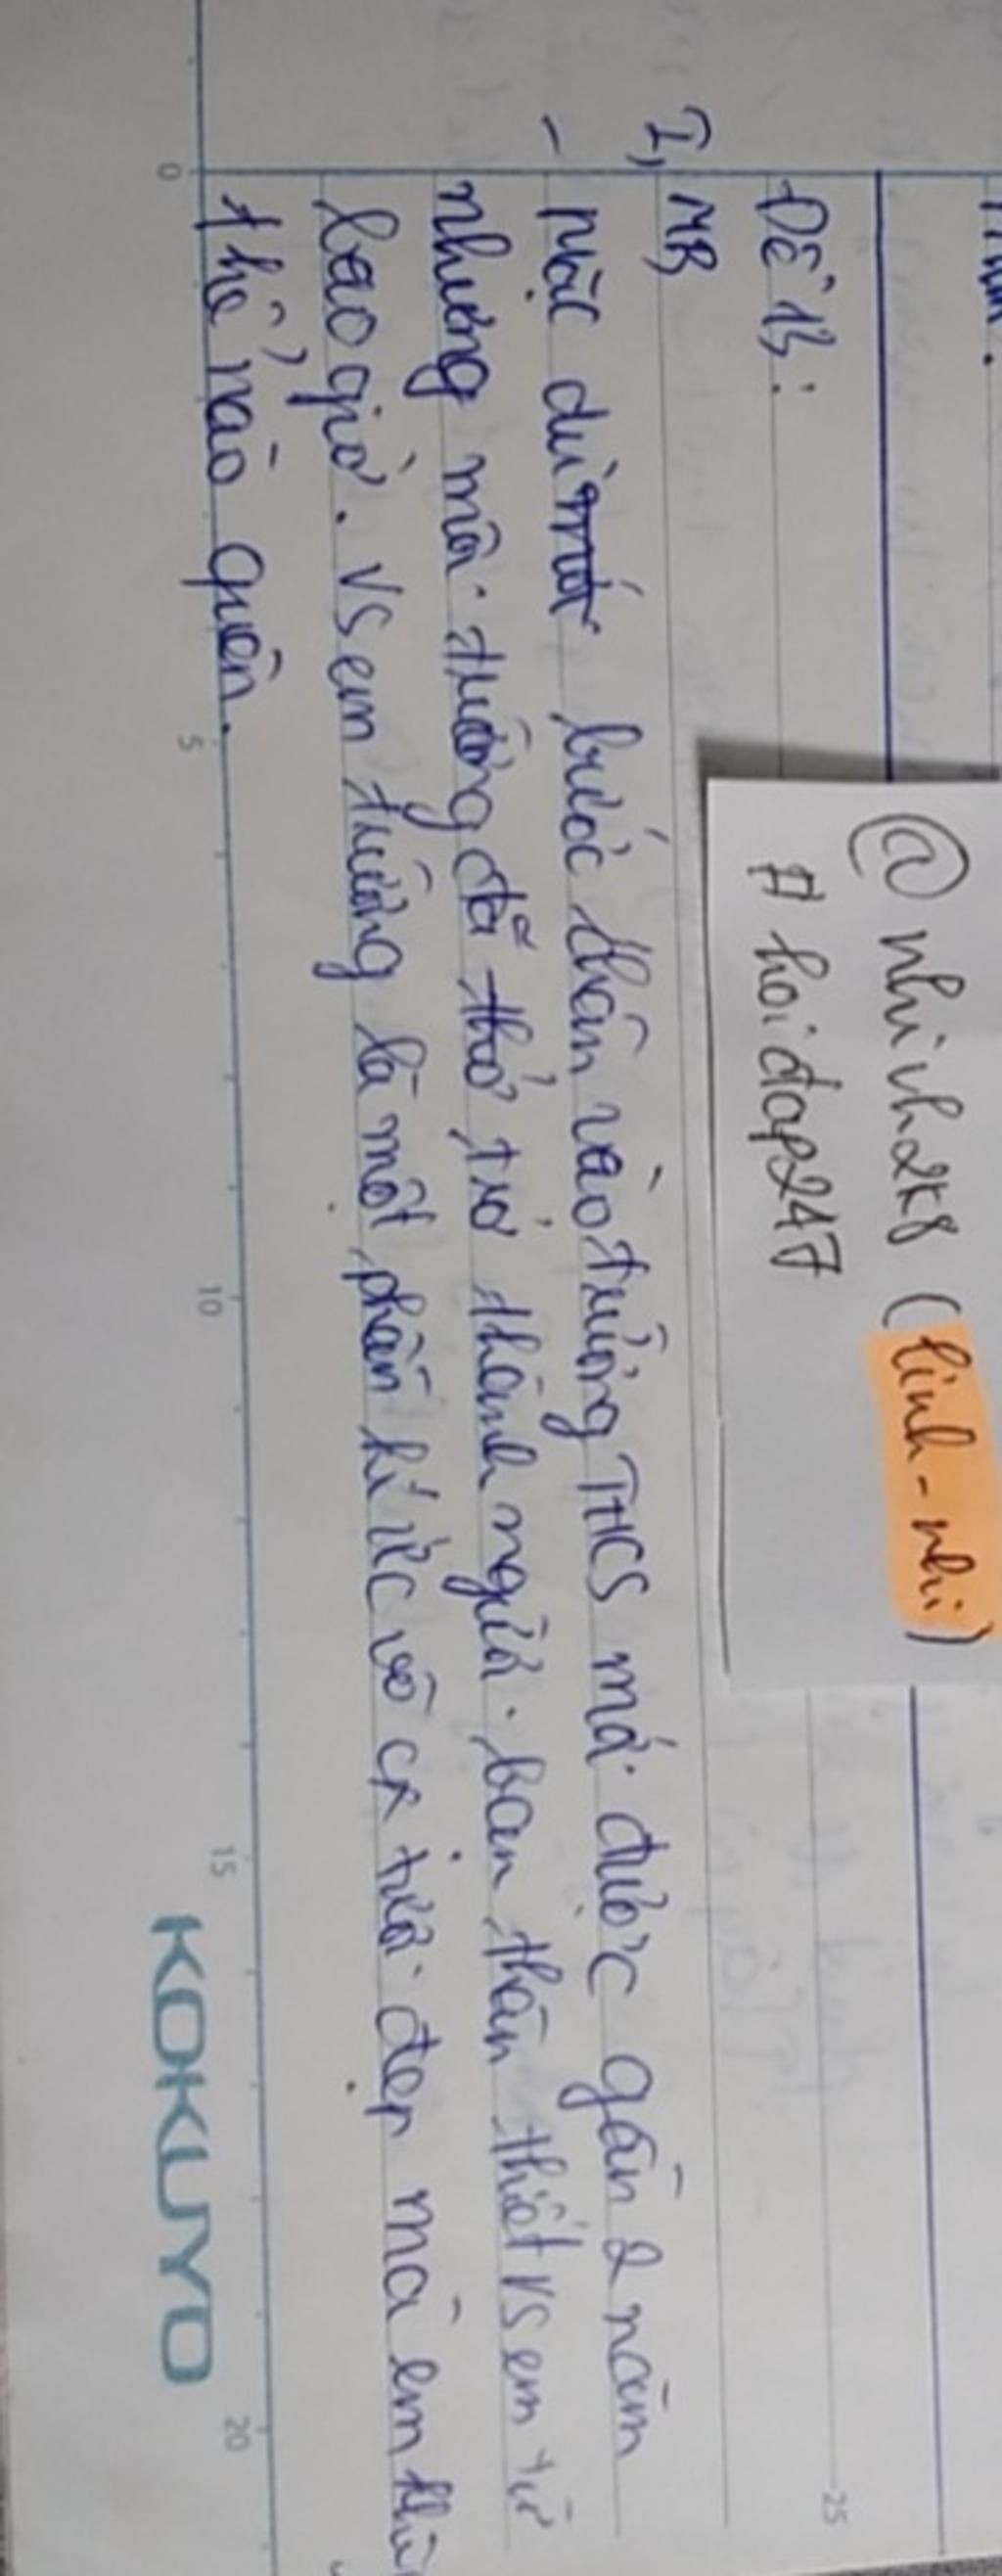 @ nhinh2k8 (linh-nhi)
# hoidap247
Đề 13:
I, MB
- Mặc dù bước chân vào trường THCS mới được gần 2 năm
nhưng mái trường đã trở thành người bạn thân thiết vs em từ
bao giờ. Vs em trường là một phần kí ức vô cx tươi đẹp mà em
thể nào quên.
0 5 10 15 20
25
KOKUYO